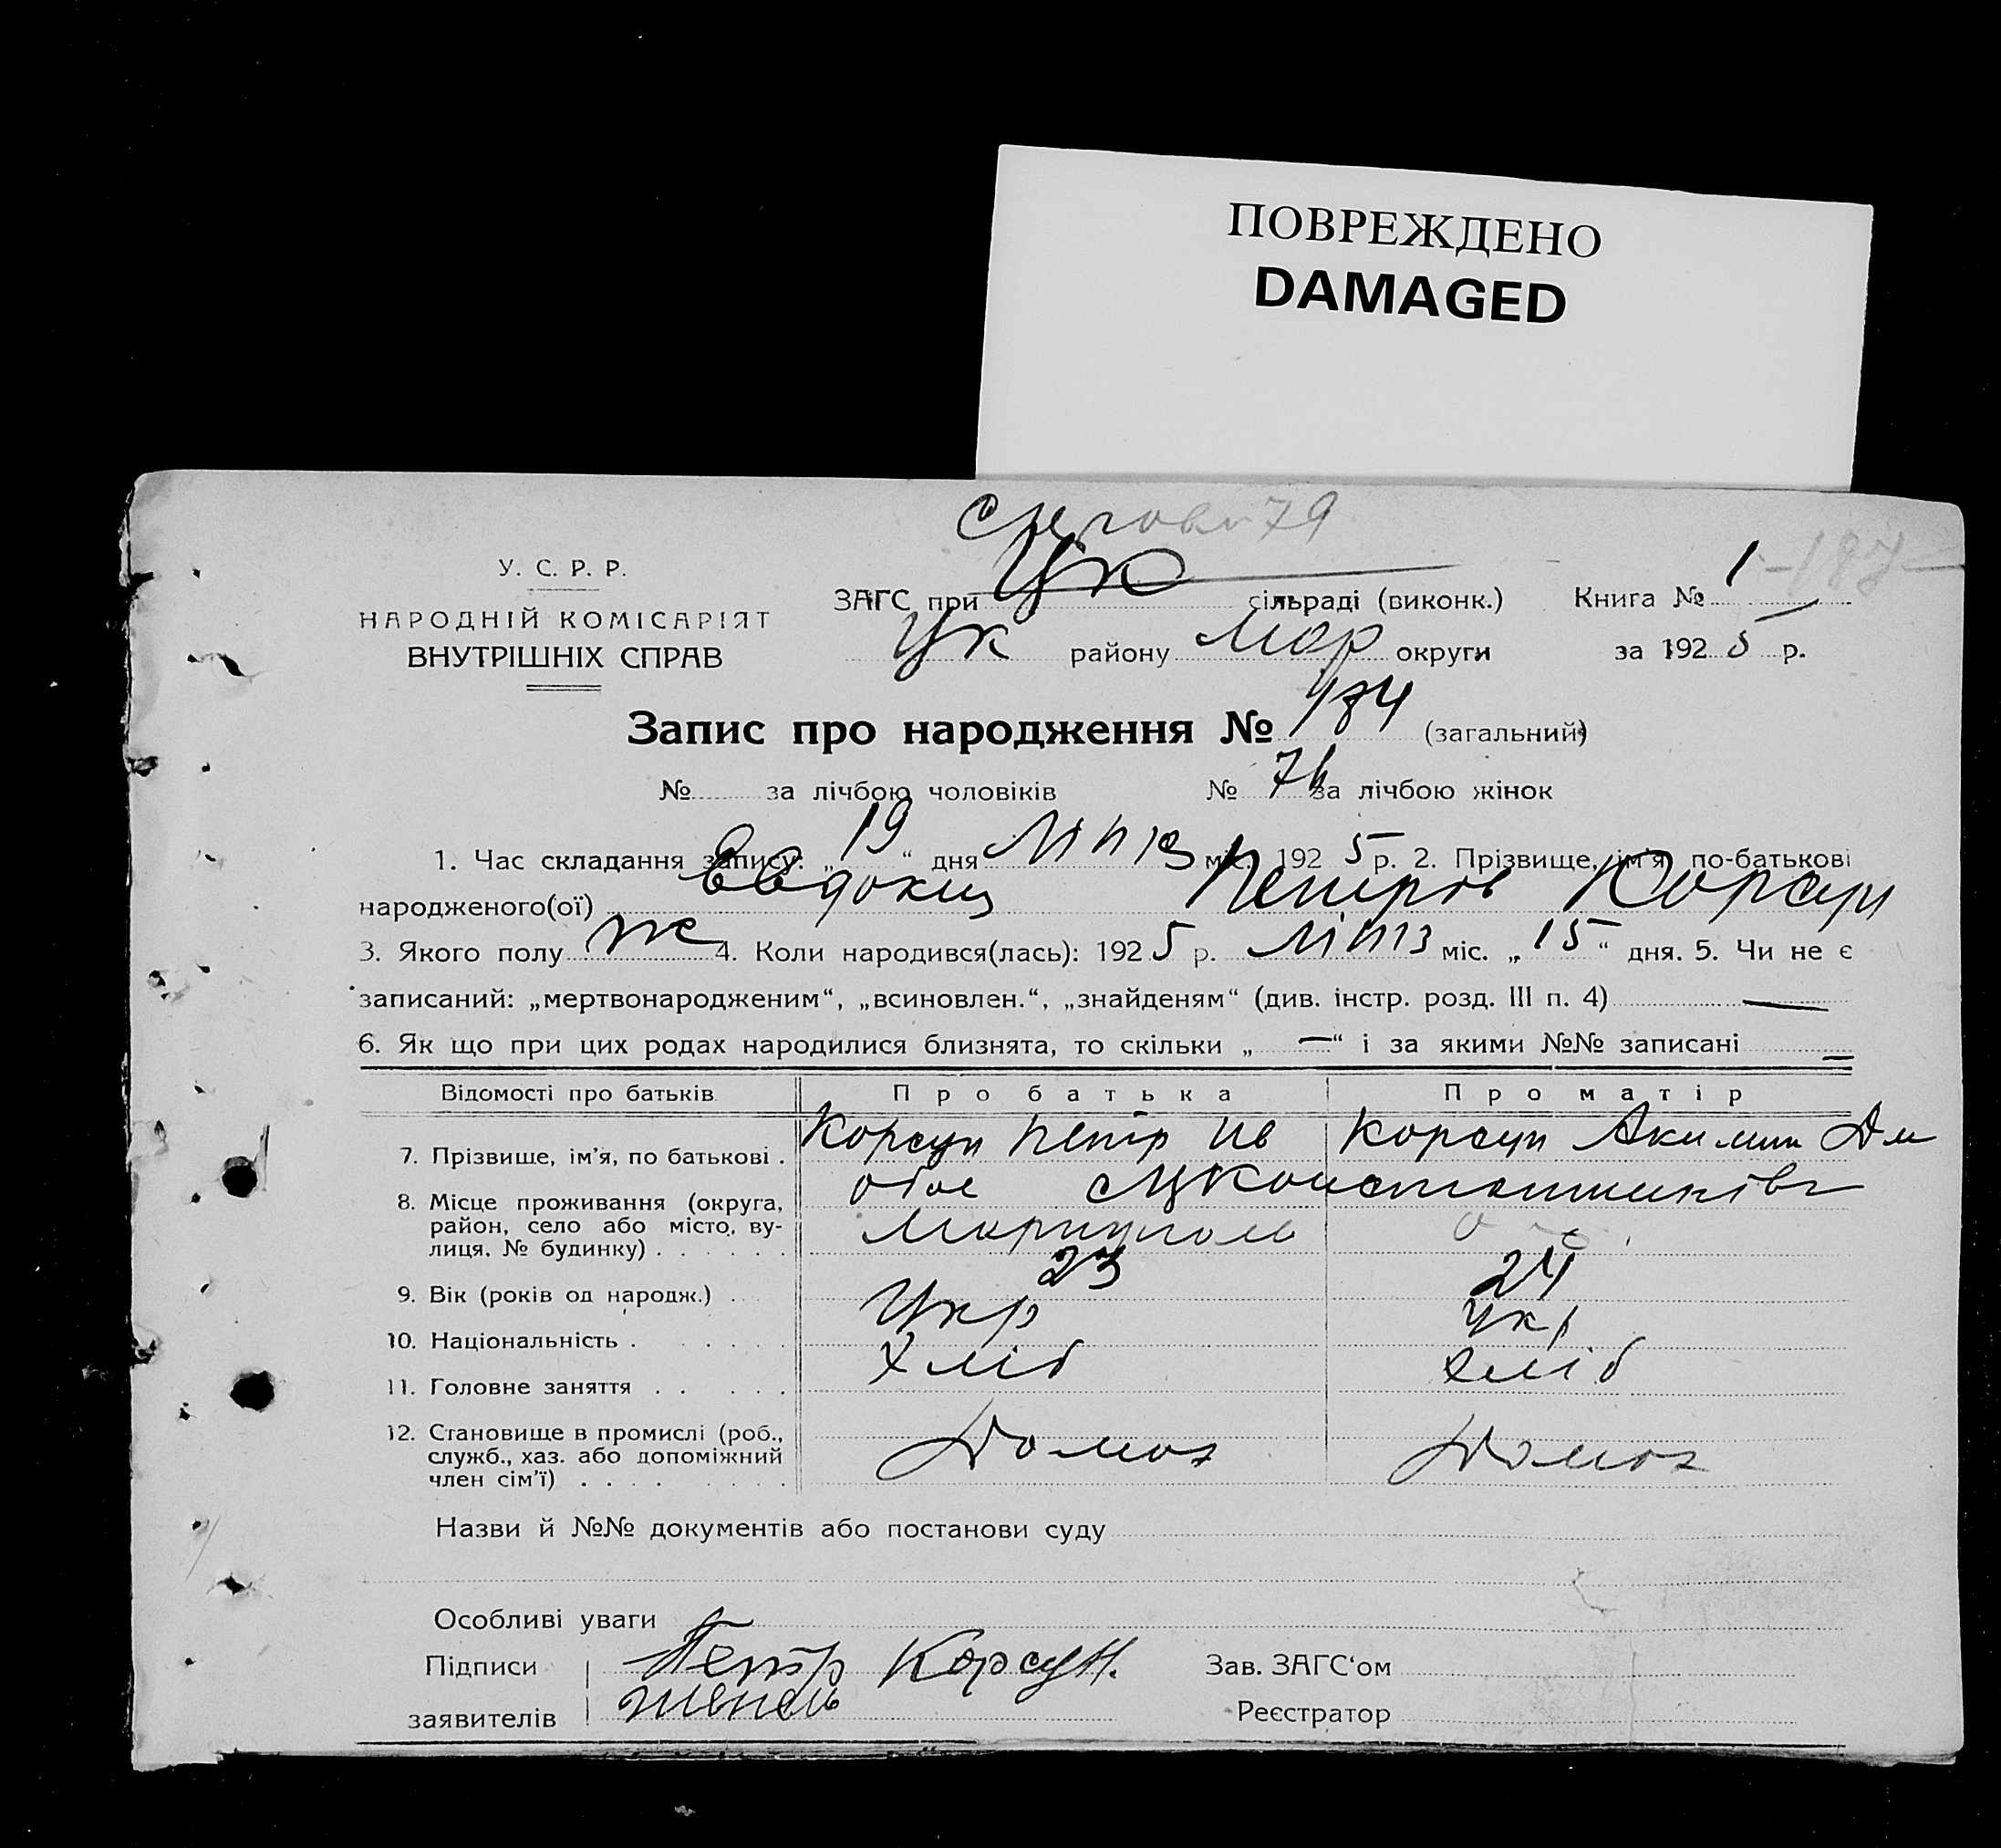 ПОВРЕЖДЕНО
DAMAGED
У. С. Р. Р.
НАРОДНІЙ КОМІСАРІЯТ
ВНУТРІШНІХ СПРАВ
ЗАГС при сільраді (виконк.)
Книга № 1
району Мар округи
за 1925 р.
Запис про народження № 184 (загальний)
№ за лічбою чоловіків № 76 за лічбою жінок
1. Час складання запису: „19“ дня міс. 1925 р. 2. Прізвище, ім'я, по-батькові
народженого(ої) Евдокия Петров Корсун
3. Якого полу ж 4. Коли народився(лась): 1925 р. міс. „15“ дня. 5. Чи не є
записаний: „мертвонародженим“, „всиновлен.“, „знайденям“ (див. інстр. розд. III п. 4) —
6. Як що при цих родах народилися близнята, то скільки „—“ і за якими №№ записані —
Відомості про батьків Про батька Про матір
7. Прізвище, ім'я, по батькові . Корсун Петр Ив Корсун Акилин Дм
8. Місце проживання (округа, район, село або місто, вулиця, № будинку) обое
Мариуполь
9. Вік (років од народж.) 23 24
10. Національність . Укр Укр
11. Головне заняття . . Хліб Хліб
12. Становище в промислі (роб., служб., хаз. або допоміжний член сім'ї) . . . . Домох Домох
Назви й №№ документів або постанови суду
Особливі уваги
Підписи Петр Корсун.
заявителів
Зав. ЗАГС'ом
Реєстратор